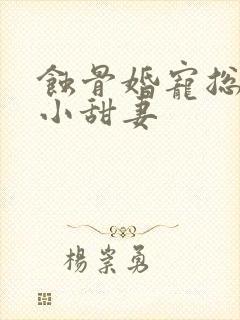 蝕骨婚寵総
小甜妻
楊崇勇